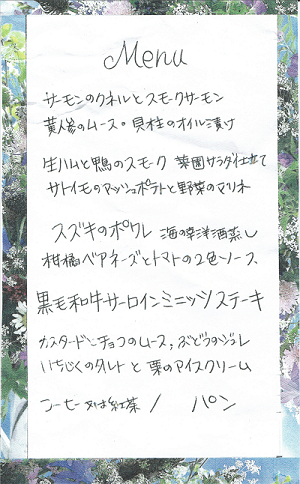 Menu
サーモンのクネルとスモークサーモン
黄人参のムース。貝柱のオイル漬け
生ハムと鴨のスモーク 菜園サラダ仕立て
サトイモのマッシュポテトと野菜のマリネ
スズキのポワレ 海の幸洋酒蒸し
柑橘ベアネーズとトマトの2色ソース
黒毛和牛サーロインミニッツステーキ
カスタードとチョコのムース,ぶどうのジュレ
いちじくのタルトと栗のアイスクリーム
コーヒー又は紅茶 / パン